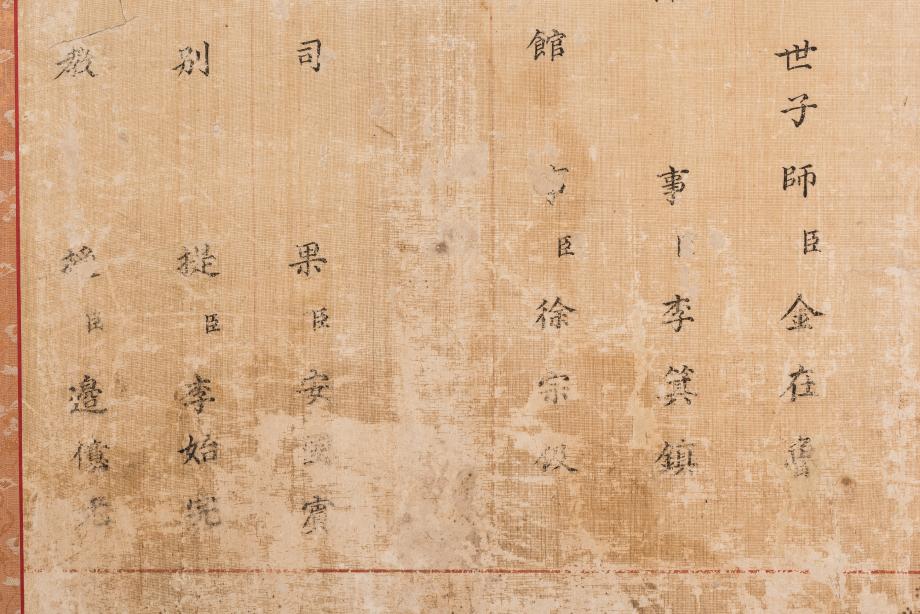 世子師臣金在魯
事臣李箕鎮
館事臣徐宗伋
司果臣安國賓
別提臣李始宪
教授臣邊億